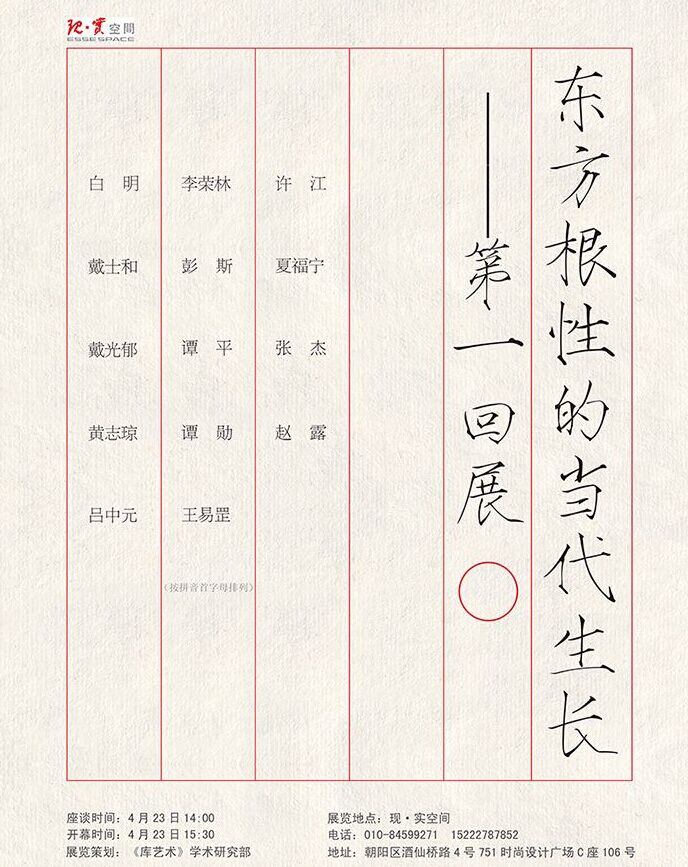 现·实空間
ESSE SPACE
东方根性的当代生长
——第一回展
白 明
李荣林
许 江
戴士和
彭 斯
夏福宁
戴光郁
谭 平
张 杰
黄志琼
谭 勋
赵 露
吕中元
王易罡
（按拼音首字母排列）
座谈时间：4 月 23 日 14:00
开幕时间：4 月 23 日 15:30
展览策划：《库艺术》学术研究部
展览地点：现·实空间
电话：010-84599271 15222787852
地址：朝阳区酒仙桥路 4 号 751 时尚设计广场 C 座 106 号